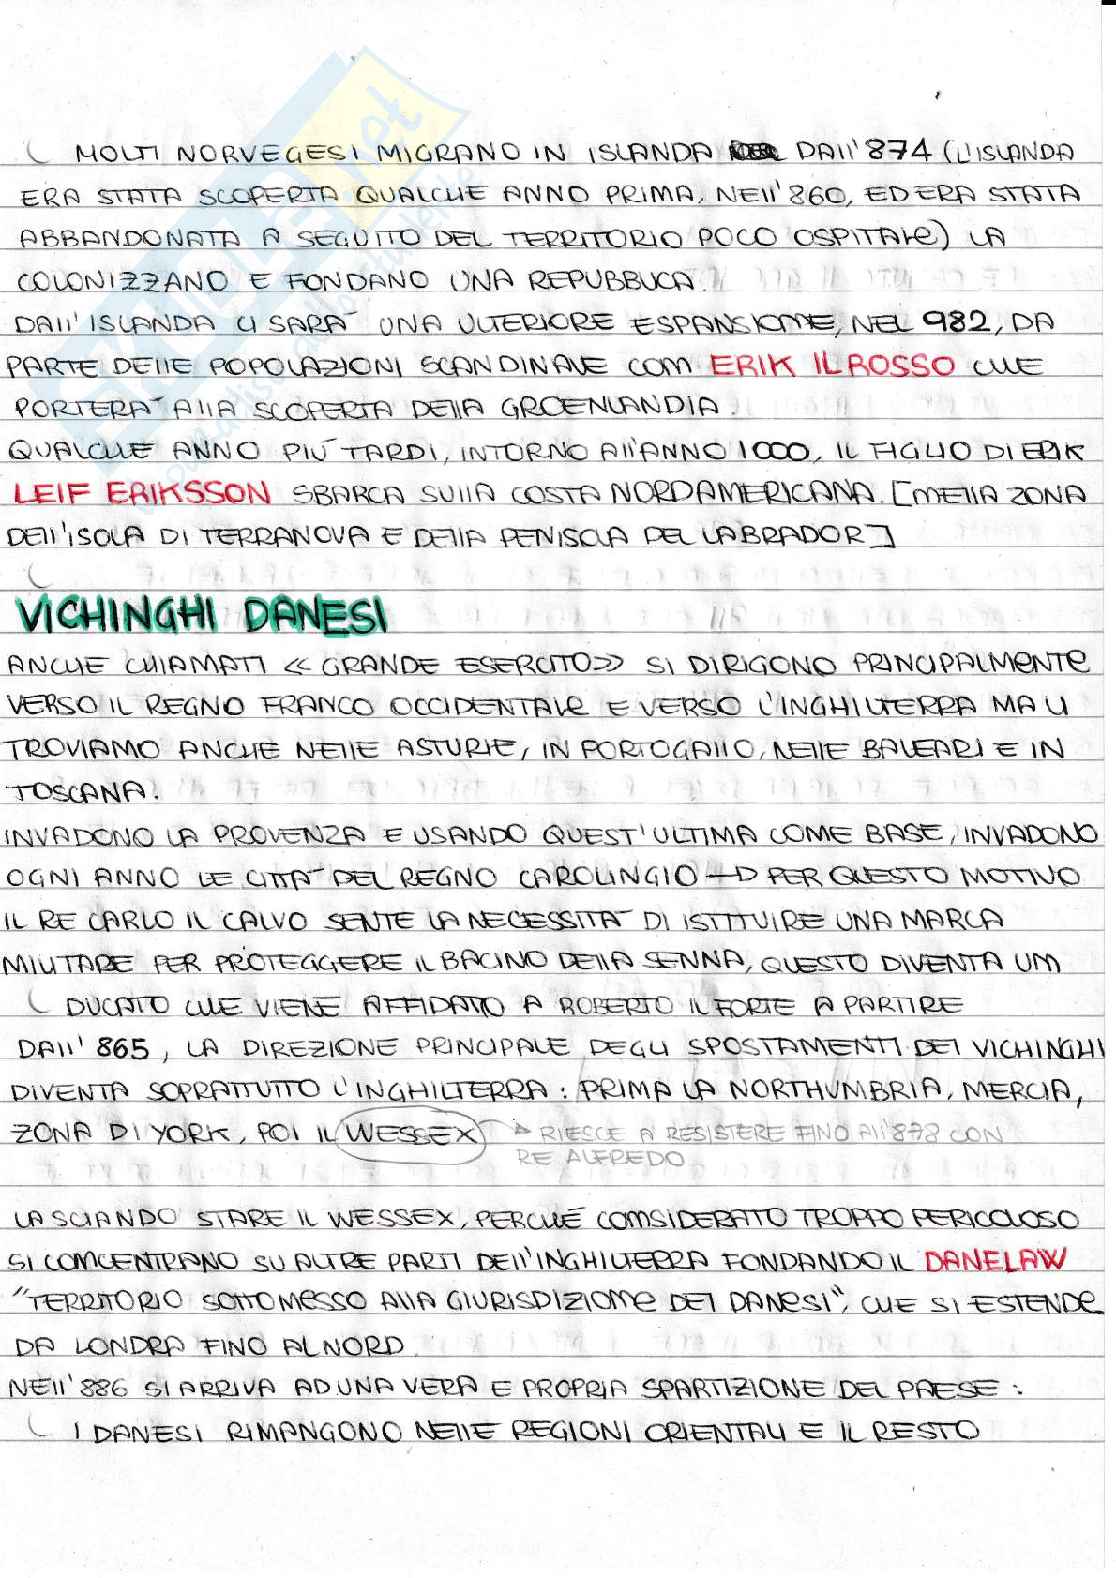 MOLTI NORVEGESI MIGRANO IN ISLANDA DALL'874 (L'ISLANDA
ERA STATA SCOPERTA QUALCHE ANNO PRIMA, NELL'860, ED ERA STATA
ABBANDONATA A SEGUITO DEL TERRITORIO POCO OSPITALE) LA
COLONIZZANO E FONDANO UNA REPUBBLICA.
DALL'ISLANDA CI SARÀ UNA ULTERIORE ESPANSIONE, NEL 982, DA
PARTE DELLE POPOLAZIONI SCANDINAVE CON ERIK IL ROSSO CHE
PORTERÀ ALLA SCOPERTA DELLA GROENLANDIA.
QUALCHE ANNO PIÙ TARDI, INTORNO ALL'ANNO 1000, IL FIGLIO DI ERIK
LEIF ERIKSSON SBARCA SULLA COSTA NORDAMERICANA. [NELLA ZONA
DELL'ISOLA DI TERRANOVA E DELLA PENISOLA DEL LABRADOR]
VICHINGHI DANESI
ANCHE CHIAMATI «GRANDE ESERCITO» SI DIRIGONO PRINCIPALMENTE
VERSO IL REGNO FRANCO OCCIDENTALE E VERSO L'INGHILTERRA MA LI
TROVIAMO ANCHE NELLE ASTURIE, IN PORTOGALLO, NELLE BALEARI E IN
TOSCANA.
INVADONO LA PROVENZA E USANDO QUEST'ULTIMA COME BASE, INVADONO
OGNI ANNO LE CITTÀ DEL REGNO CAROLINGIO → PER QUESTO MOTIVO
IL RE CARLO IL CALVO SENTE LA NECESSITÀ DI ISTITUIRE UNA MARCA
MILITARE PER PROTEGGERE IL BACINO DELLA SENNA, QUESTO DIVENTA UN
DUCATO CHE VIENE AFFIDATO A ROBERTO IL FORTE A PARTIRE
DALL'865, LA DIREZIONE PRINCIPALE DEGLI SPOSTAMENTI DEI VICHINGHI
DIVENTA SOPRATTUTTO L'INGHILTERRA: PRIMA LA NORTHUMBRIA, MERCIA,
ZONA DI YORK, POI IL WESSEX → RIESCE A RESISTERE FINO ALL'878 CON
RE ALFREDO
LASCIANDO STARE IL WESSEX, PERCHÉ CONSIDERATO TROPPO PERICOLOSO
SI CONCENTRANO SU ALTRE PARTI DELL'INGHILTERRA FONDANDO IL DANELAW
"TERRITORIO SOTTOMESSO ALLA GIURISDIZIONE DEI DANESI", CHE SI ESTENDE
DA LONDRA FINO AL NORD.
NELL'886 SI ARRIVA AD UNA VERA E PROPRIA SPARTIZIONE DEL PAESE:
I DANESI RIMANGONO NELLE REGIONI ORIENTALI E IL RESTO